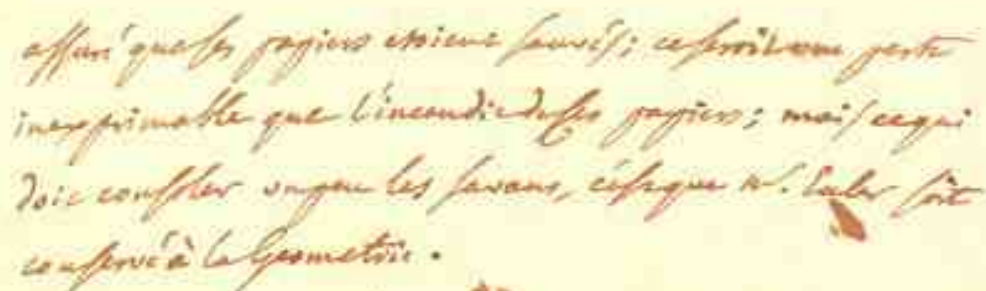 assuré que ses papiers etoient sauvés; ce seroit une perte
inexprimable que l'incendie de ses papiers; mais ce qui
doit consoler un peu les savans, c'est que Mr. Euler soit
conservé à la Geometrie.